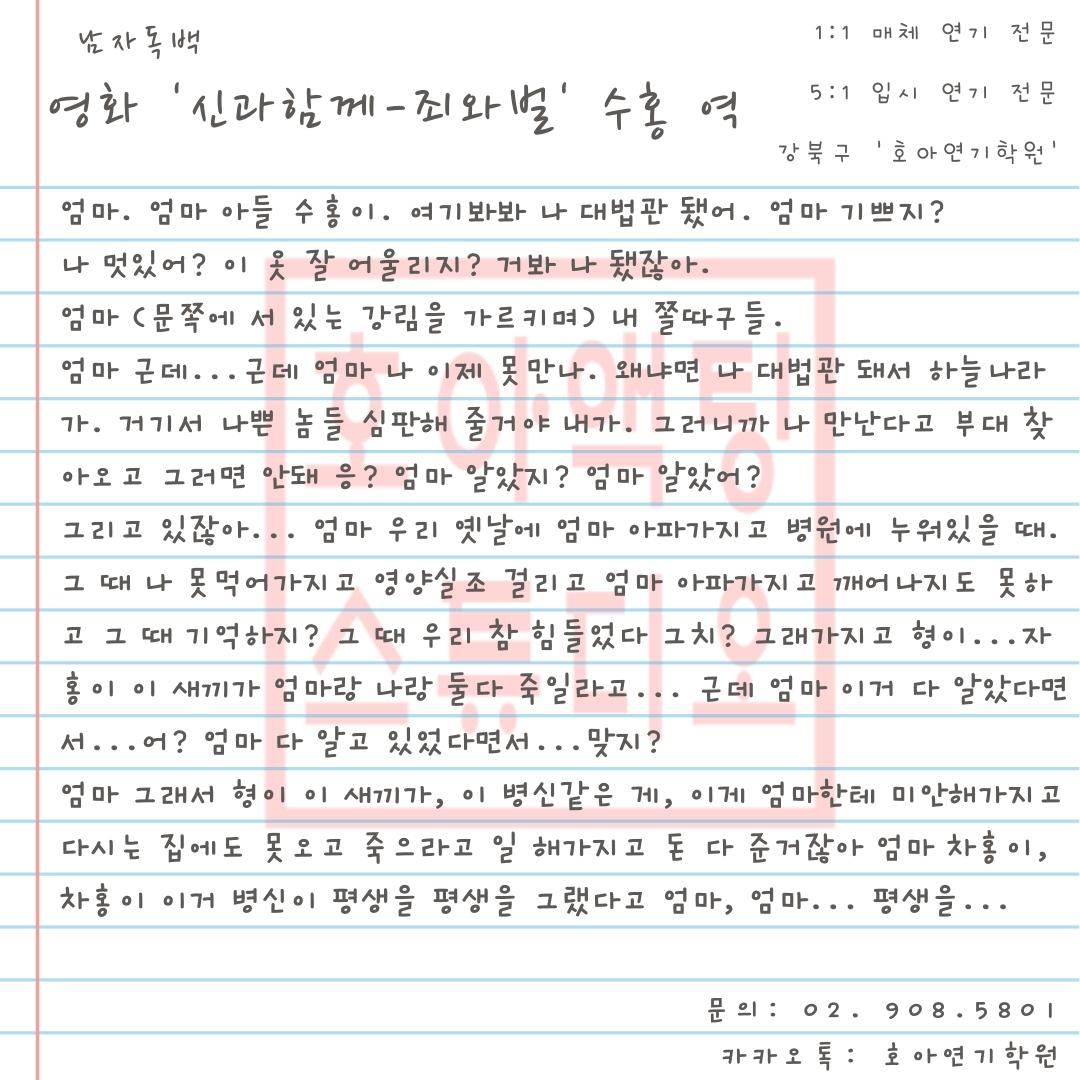 남자독백
영화 '신과함께-죄와벌' 수홍 역
1:1 매체 연기 전문
5:1 입시 연기 전문
강북구 '호아연기학원'
엄마. 엄마 아들 수홍이. 여기봐봐 나 대법관 됐어. 엄마 기쁘지?
나 멋있어? 이 옷 잘 어울리지? 거봐 나 됐잖아.
엄마 (문쪽에 서 있는 강림을 가르키며) 내 쫄따구들.
엄마 근데...근데 엄마 나 이제 못만나. 왜냐면 나 대법관 돼서 하늘나라
가. 거기서 나쁜 놈들 심판해 줄거야 내가. 그러니까 나 만난다고 부대 찾
아오고 그러면 안돼 응? 엄마 알았지? 엄마 알았어?
그리고 있잖아... 엄마 우리 옛날에 엄마 아파가지고 병원에 누워있을 때.
그 때 나 못먹어가지고 영양실조 걸리고 엄마 아파가지고 깨어나지도 못하
고 그 때 기억하지? 그 때 우리 참 힘들었다 그치? 그래가지고 형이...자
홍이 이 새끼가 엄마랑 나랑 둘다 죽일라고... 근데 엄마 이거 다 알았다면
서...어? 엄마 다 알고 있었다면서...맞지?
엄마 그래서 형이 이 새끼가, 이 병신같은 게, 이게 엄마한테 미안해가지고
다시는 집에도 못오고 죽으라고 일 해가지고 돈 다 준거잖아 엄마 차홍이,
차홍이 이거 병신이 평생을 평생을 그랬다고 엄마, 엄마... 평생을...
호아액팅
스튜디오
문의: 02. 908.5801
카카오톡: 호아연기학원